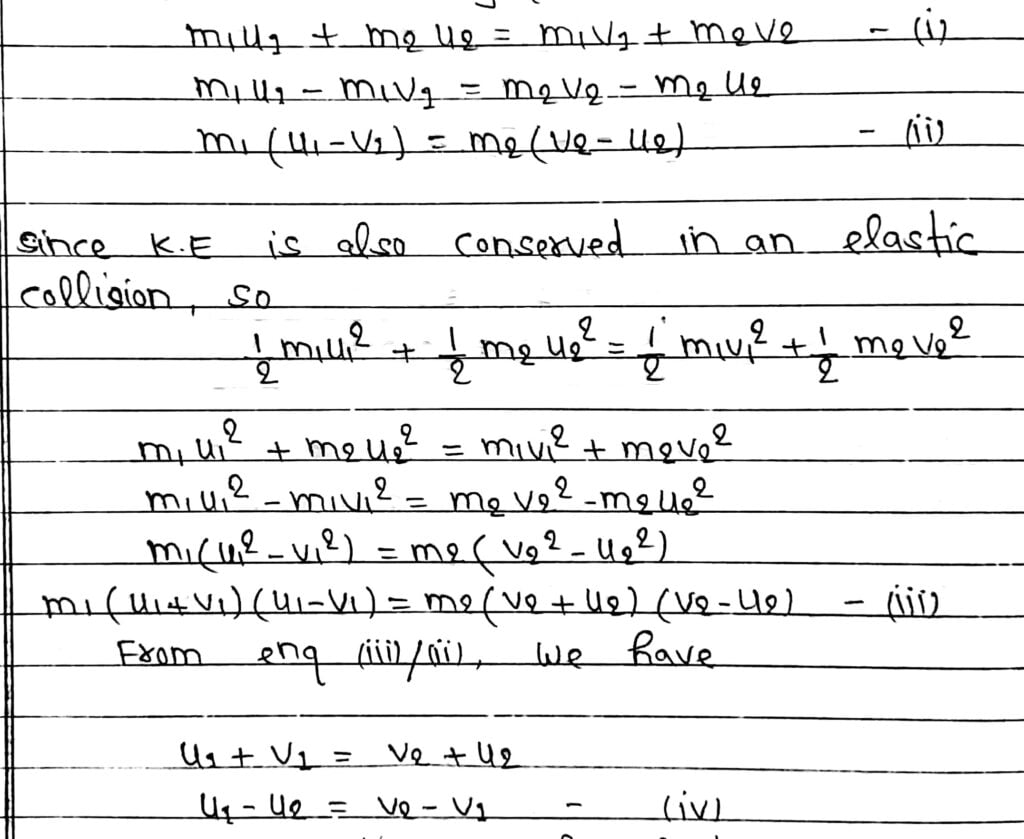 m₁u₁ + m₂u₂ = m₁v₁ + m₂v₂ - (i)
m₁u₁ - m₁v₁ = m₂v₂ - m₂u₂
m₁(u₁-v₁) = m₂(v₂-u₂) - (ii)
since K.E is also conserved in an elastic
collision, so
1/2 m₁u₁² + 1/2 m₂u₂² = 1/2 m₁v₁² + 1/2 m₂v₂²
m₁u₁² + m₂u₂² = m₁v₁² + m₂v₂²
m₁u₁² - m₁v₁² = m₂v₂² - m₂u₂²
m₁(u₁² - v₁²) = m₂(v₂² - u₂²)
m₁(u₁+v₁)(u₁-v₁) = m₂(v₂+u₂)(v₂-u₂) - (iii)
From enq (iii)/(ii), we have
u₁ + v₁ = v₂ + u₂
u₁ - u₂ = v₂ - v₁ - (iv)